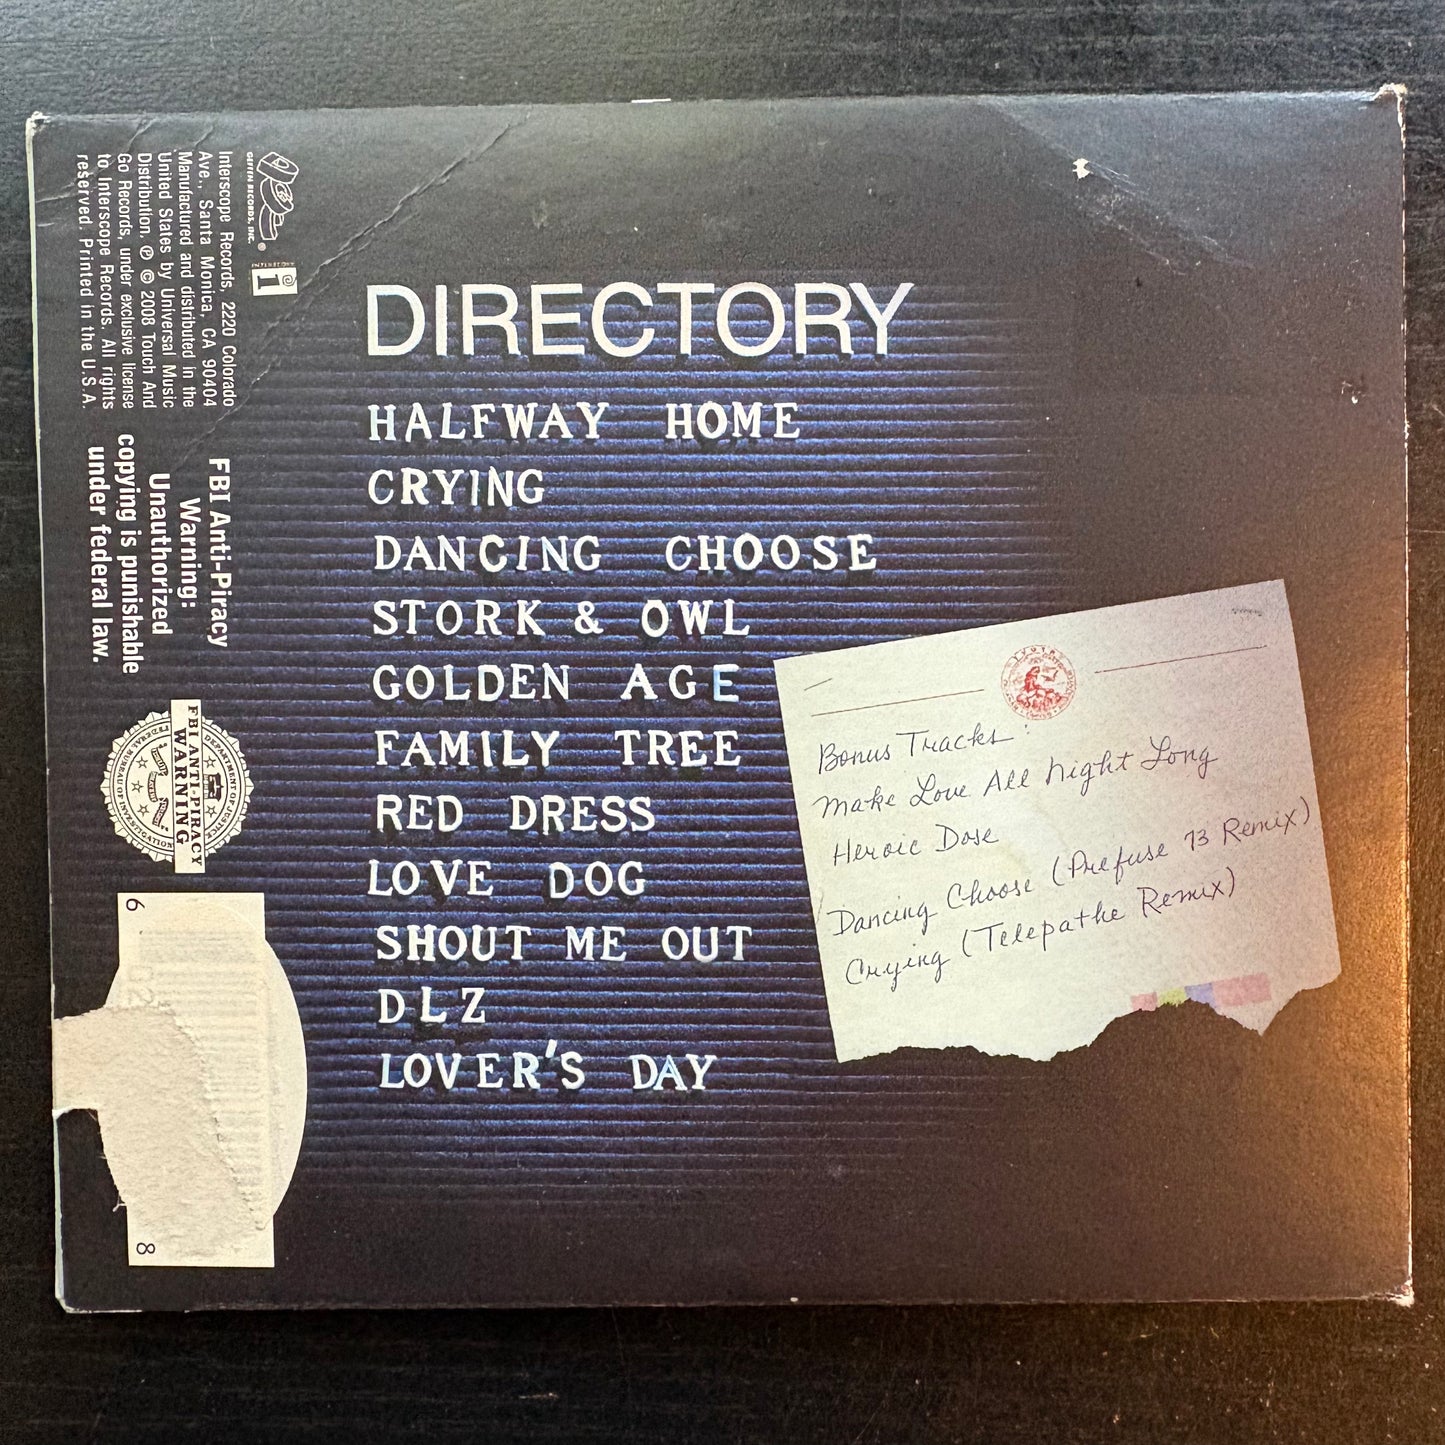 DIRECTORY
HALFWAY HOME
CRYING
DANCING CHOOSE
STORK & OWL
GOLDEN AGE
FAMILY TREE
RED DRESS
LOVE DOG
SHOUT ME OUT
DLZ
LOVER'S DAY
Bonus Tracks:
Make Love All Night Long
Heroic Dose
Dancing Choose (Prefuse 73 Remix)
Crying (Telepathe Remix)
GEFFEN RECORDS, INC.
Interscope Records, 2220 Colorado
Ave., Santa Monica, CA 90404
Manufactured and distributed in the
United States by Universal Music
Distribution. ℗ © 2008 Touch And
Go Records, under exclusive license
to Interscope Records. All rights
reserved. Printed in the U.S.A.
FBI Anti-Piracy
Warning:
Unauthorized
copying is punishable
under federal law.
DEPARTMENT OF JUSTICE
FEDERAL BUREAU OF INVESTIGATION
FBI ANTI-PIRACY
WARNING
6
02
8